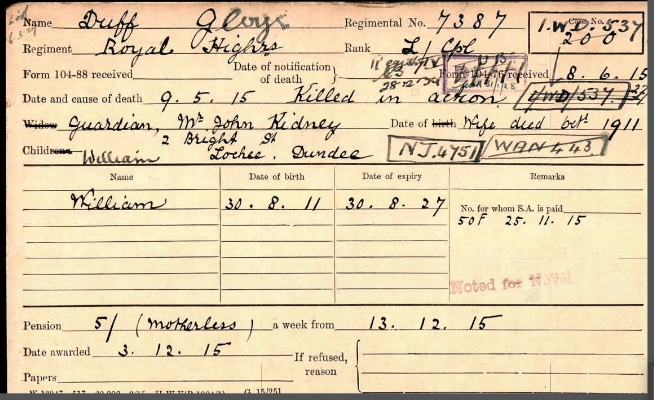 Name Duff George Regimental No. 7387 Case No. 200 1.W.D. 537
Regiment Royal Highrs Rank L/Cpl
Form 104-88 received Date of notification of death Form 104-76 received 8.6.15
28.12.
Date and cause of death 9.5.15 Killed in action /WD/537.
Widow Guardian, Mr John Kidney Date of birth Wife died Octr 1911
2 Bright St
Children William Lochee. Dundee NJ.4751 WAN443
Name Date of birth Date of expiry Remarks
William 30.8.11 30.8.27 No. for whom S.A. is paid
50F 25.11.15
Noted for Novel
Pension 5/ (motherless) a week from 13.12.15
Date awarded 3.12.15 If refused, reason
Papers